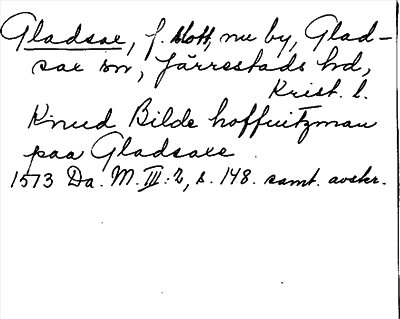 Gladsax, f. slott, nu by, Glad-
sax sn, Järrestads hd,
Krist. l.
Knud Bilde hoffuitzman
paa Gladsaxe
1513 Da. M. III:2, s. 148. samt. avskr.